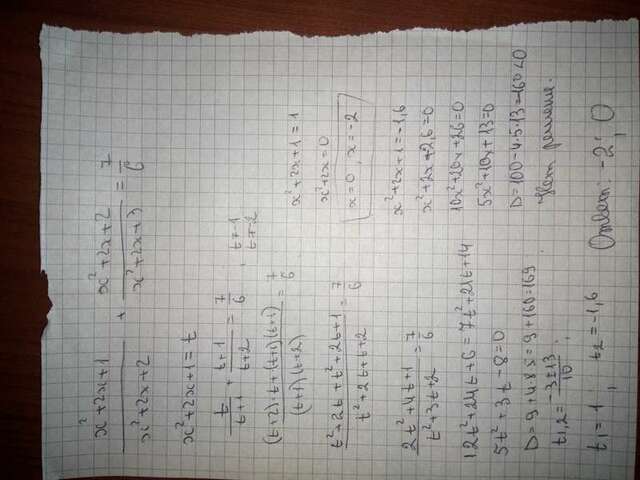 x²+2x+1/x²+2x+2 + x²+2x+2/x²+2x+3 = 7/6
x²+2x+1=t
t/t+1 + t+1/t+2 = 7/6 ; t≠-1
t≠-2
(t+2)·t+(t+1)(t+1)/(t+1)(t+2) = 7/6
t²+2t+t²+2t+1/t²+2t+t+2 = 7/6
2t²+4t+1/t²+3t+2 = 7/6
12t²+24t+6=7t²+21t+14
5t²+3t-8=0
D=9+4·8·5=9+160=169
t1,2=-3±13/10 ;
t1=1 ; t2=-1,6
x²+2x+1=1
x²+2x=0
x=0, x=-2
x²+2x+1=-1,6
x²+2x+2,6=0
10x²+20x+26=0
5x²+10x+13=0
D=100-4·5·13=-160<0
Нет решение.
Ответ: -2; 0